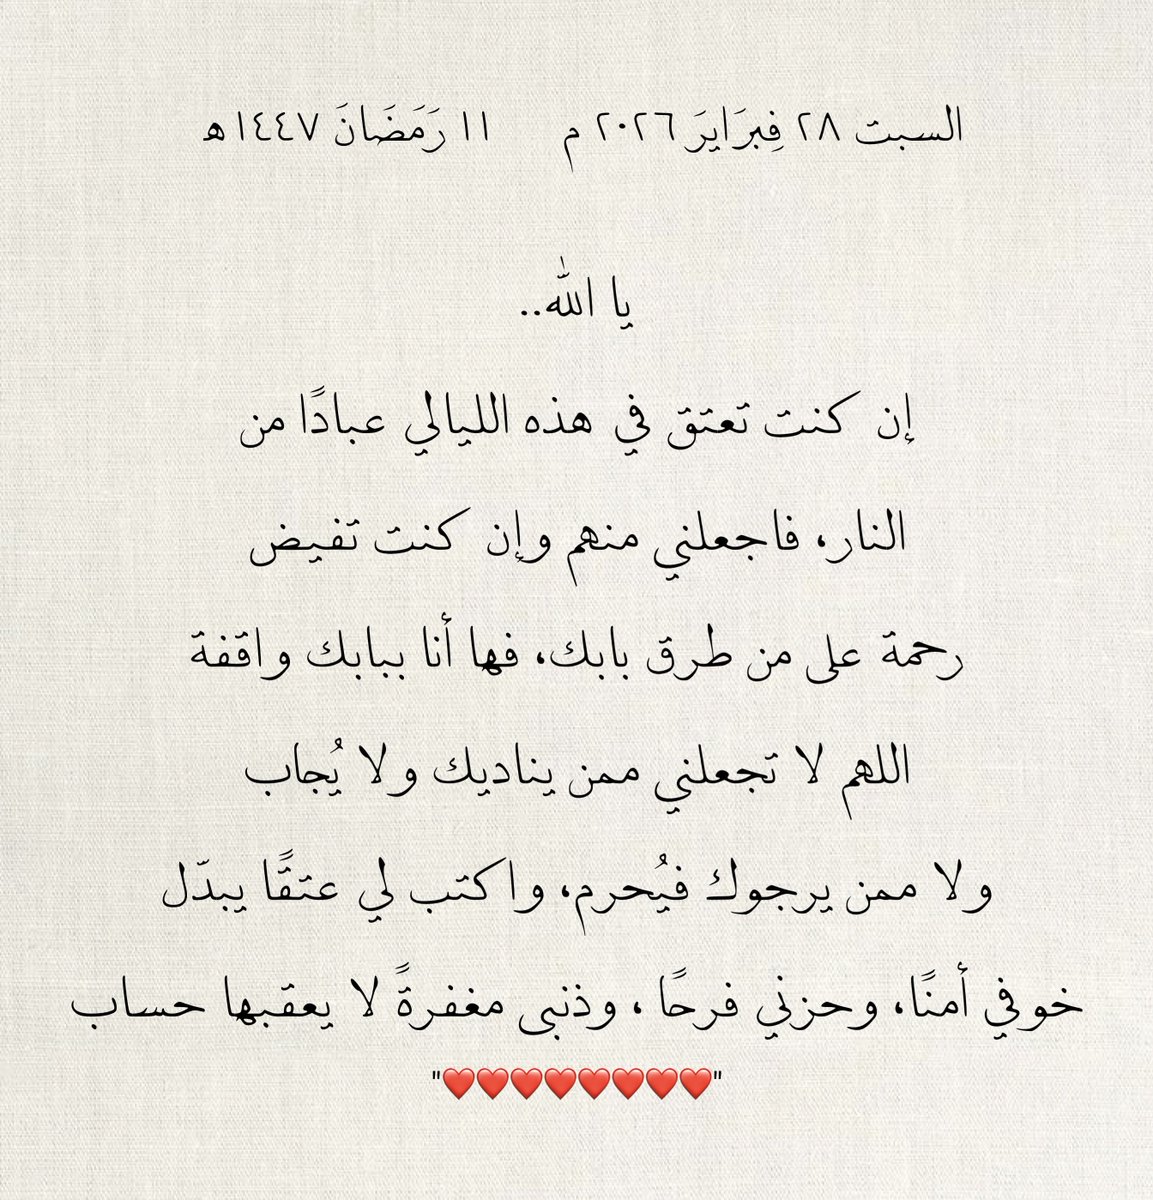 السبت ٢٨ فِبرَايرَ ٢٠٢٦ م ١١ رَمَضَانَ ١٤٤٧ه
يا الله..
إن كنت تعتق في هذه الليالي عبادًا من
النار، فاجعلني منهم وإن كنت تفيض
رحمة على من طرق بابك، فها أنا ببابك واقفة
اللهم لا تجعلني ممن يناديك ولا يُجاب
ولا ممن يرجوك فيُحرم، واكتب لي عتقًا يبدّل
خوفي أمنًا، وحزني فرحًا ، وذنبى مغفرةً لا يعقبها حساب
"❤️❤️❤️❤️❤️❤️❤️❤️"